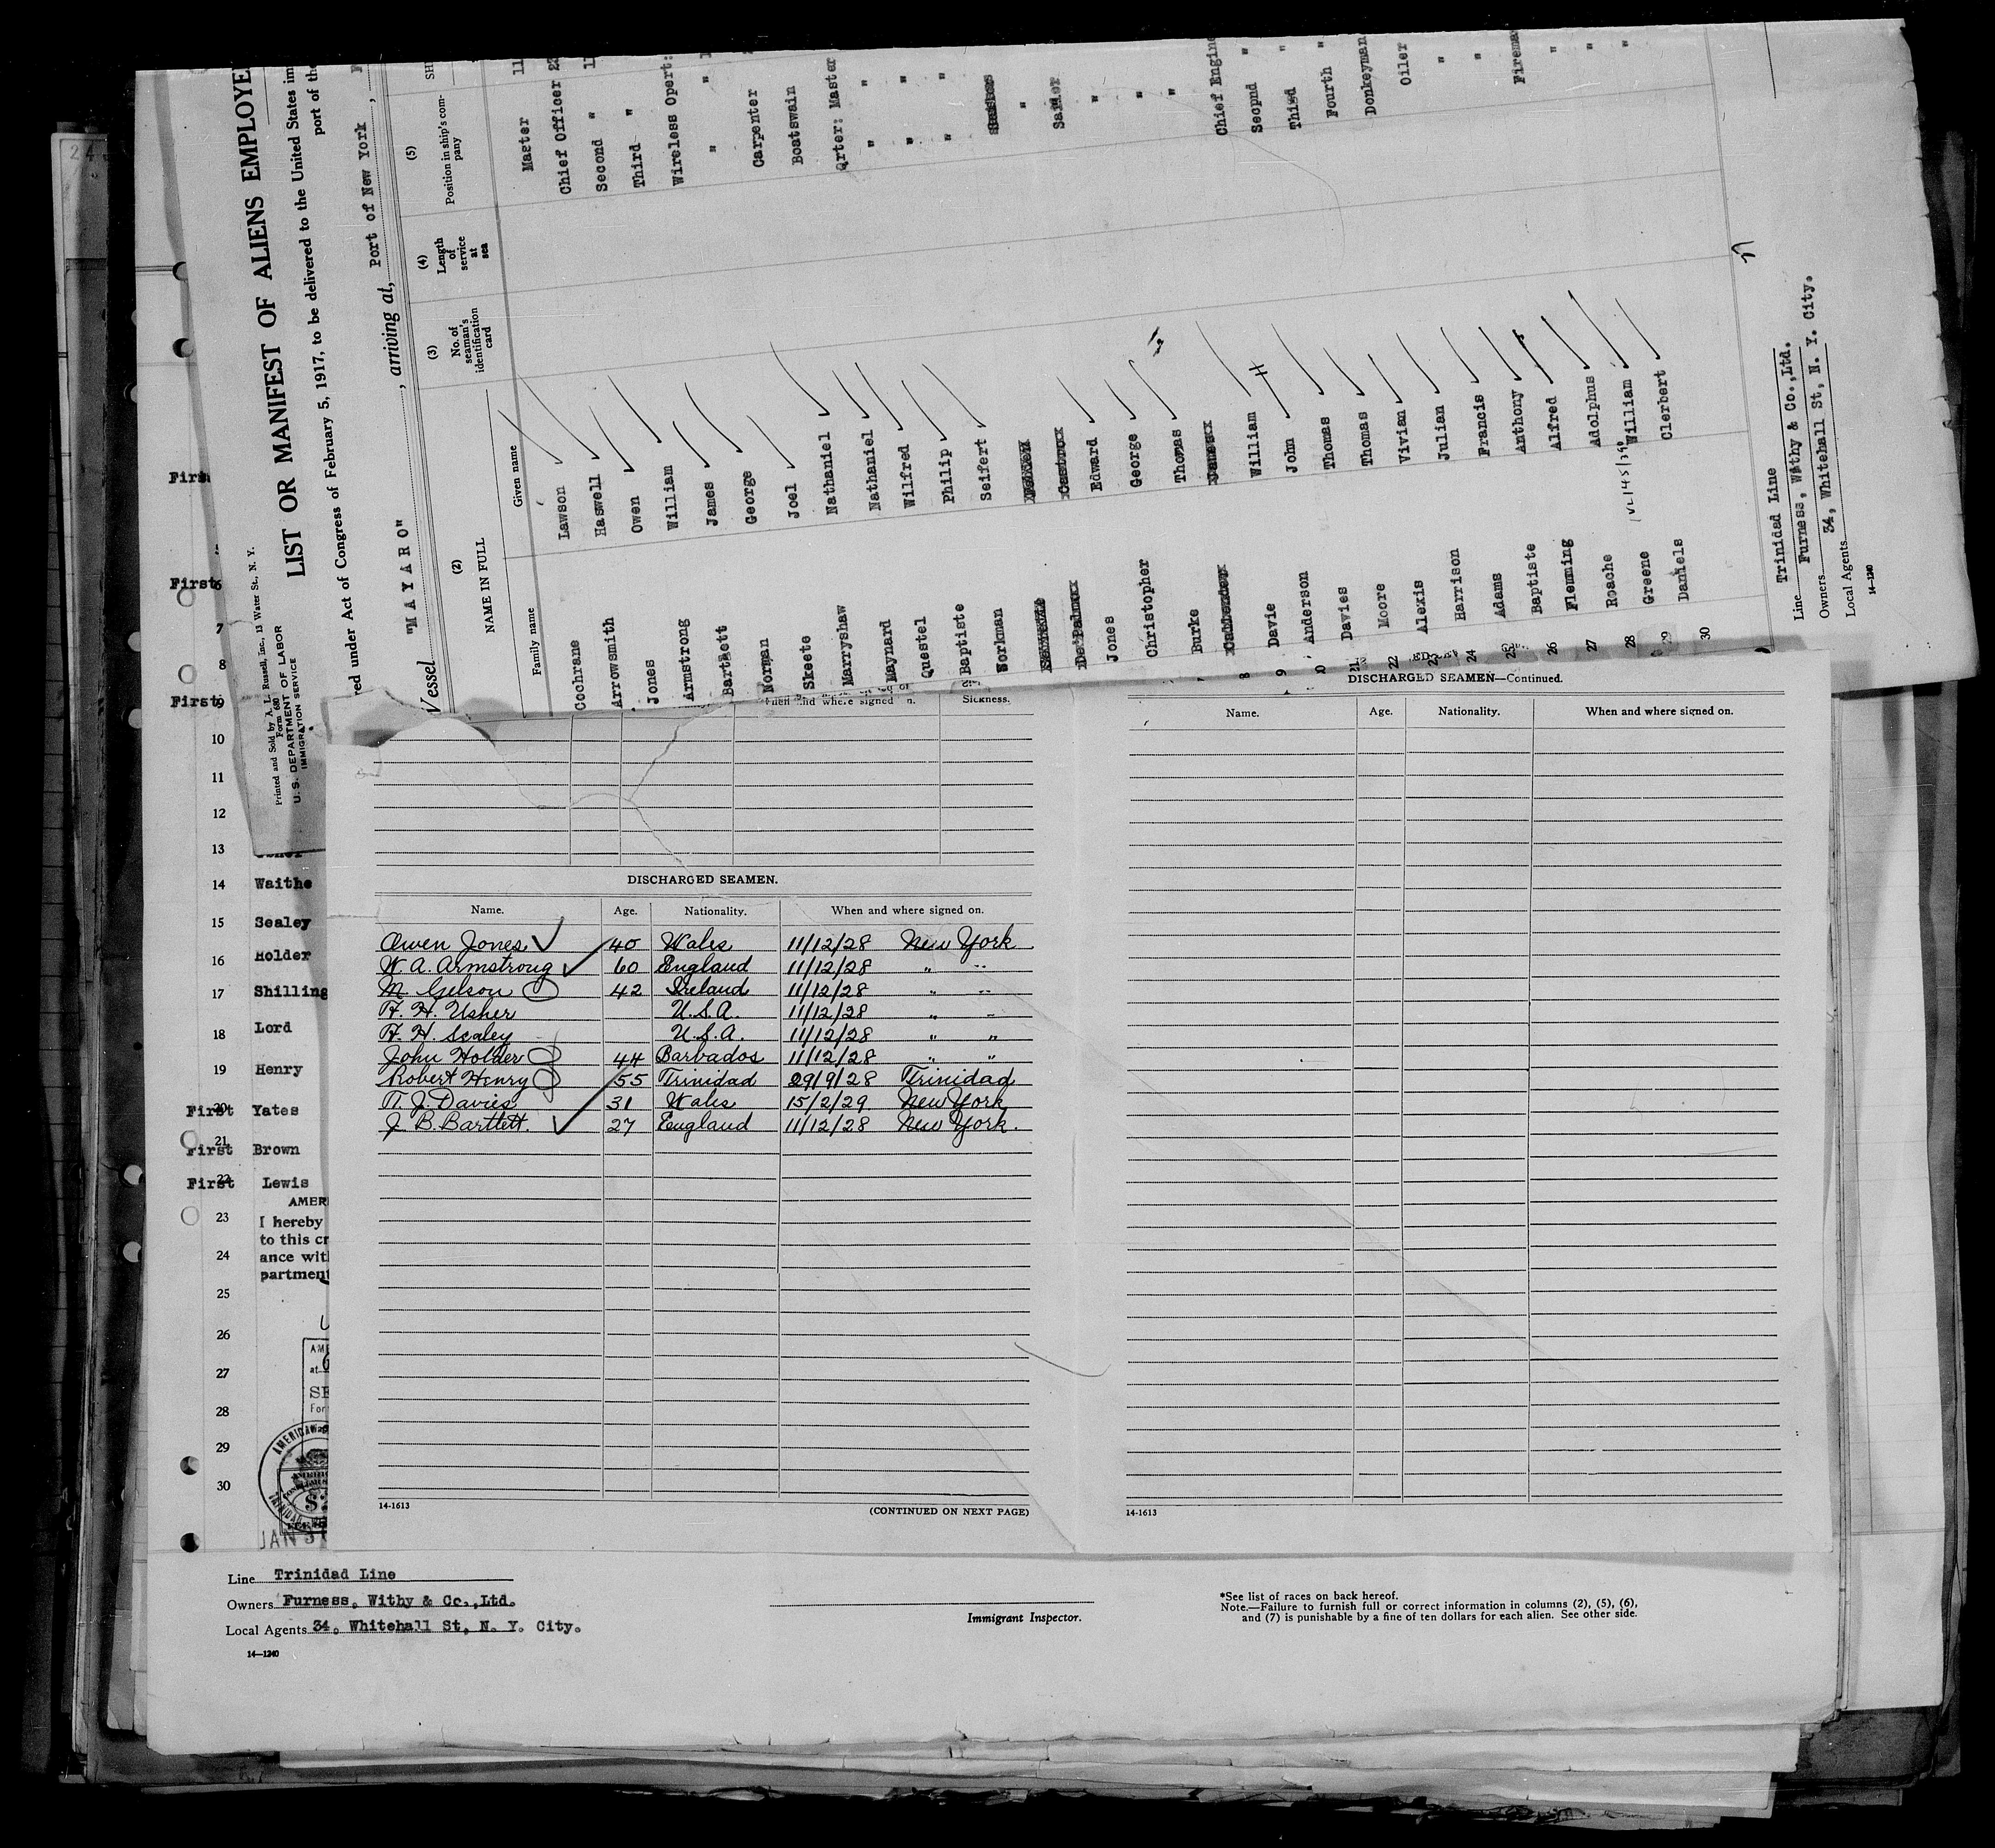 Printed and Sold by A. L. Russell, Inc., 13 Water St. N. Y.
Form 680
U. S. DEPARTMENT OF LABOR
IMMIGRATION SERVICE
LIST OR MANIFEST OF ALIENS EMPLOYE
red under Act of Congress of February 5, 1917, to be delivered to the United States im
port of the
Vessel "M A Y A R O" , arriving at, Port of New York ,
(2) (3) (4) (5)
NAME IN FULL No. of seaman's identification card Length of service at sea Position in ship's company
Family name Given name
Master 11
Cochrane Lawson Chief Officer
Arrowsmith Haswell Second "
Jones Owen Third "
Armstrong William Wireless Opert:
Bartlett James " "
Norman George Carpenter
Skeete Joel Boatswain
Marryshaw Nathaniel Qrter: Master
Maynard Nathaniel " "
Questel Wilfred " "
Baptiste Philip " "
Workman Seifert
"
Jones Edward "
Christopher George "
Burke Thomas "
Chief Engine
8 Davie William Second "
9 Anderson John Third "
Davies Thomas Fourth "
21 Moore Thomas Donkeyman
22 Alexis Vivian Oiler
23 Harrison Julian "
24 Adams Francis "
25 Baptiste Anthony Firema
26 Flemming Alfred "
27 Roache Adolphus "
28 Greene William "
29 Daniels Clerbert
30
Line Trinidad Line
Owners Furness, Withy & Co.,Ltd.
Local Agents 34, Whitehall St, N. Y. City.
14—1240
24
First
First 6
7
8
First 9
10
11
12
13
14 Waithe
15 Sealey
16 Holder
17 Shilling
18 Lord
19 Henry
First 20 Yates
21
First Brown
First 22 Lewis
AMER
23 I hereby
to this cr
24 ance wit
partment
25
26
27
28
29
30
JAN 31
when and where signed on. Sickness.
DISCHARGED SEAMEN.
Name. Age. Nationality. When and where signed on.
Owen Jones 40 Wales 11/12/28 New York
W. A. Armstrong 60 England 11/12/28 " "
M. Gelson 42 Ireland 11/12/28 " "
H. H. Usher U.S.A. 11/12/28 " "
H. H. Sealey U.S.A. 11/12/28 " "
John Holder 44 Barbados 11/12/28 " "
Robert Henry 55 Trinidad 29/9/28 Trinidad
T. J. Davies 31 Wales 15/2/29 New York
J. B. Bartlett. 27 England 11/12/28 New York.
14-1613 (CONTINUED ON NEXT PAGE)
DISCHARGED SEAMEN—Continued.
Name. Age. Nationality. When and where signed on.
14-1613
Line Trinidad Line
Owners Furness, Withy & Co.,Ltd.
Local Agents 34, Whitehall St, N. Y. City.
14—1240
Immigrant Inspector.
*See list of races on back hereof.
Note.—Failure to furnish full or correct information in columns (2), (5), (6),
and (7) is punishable by a fine of ten dollars for each alien. See other side.